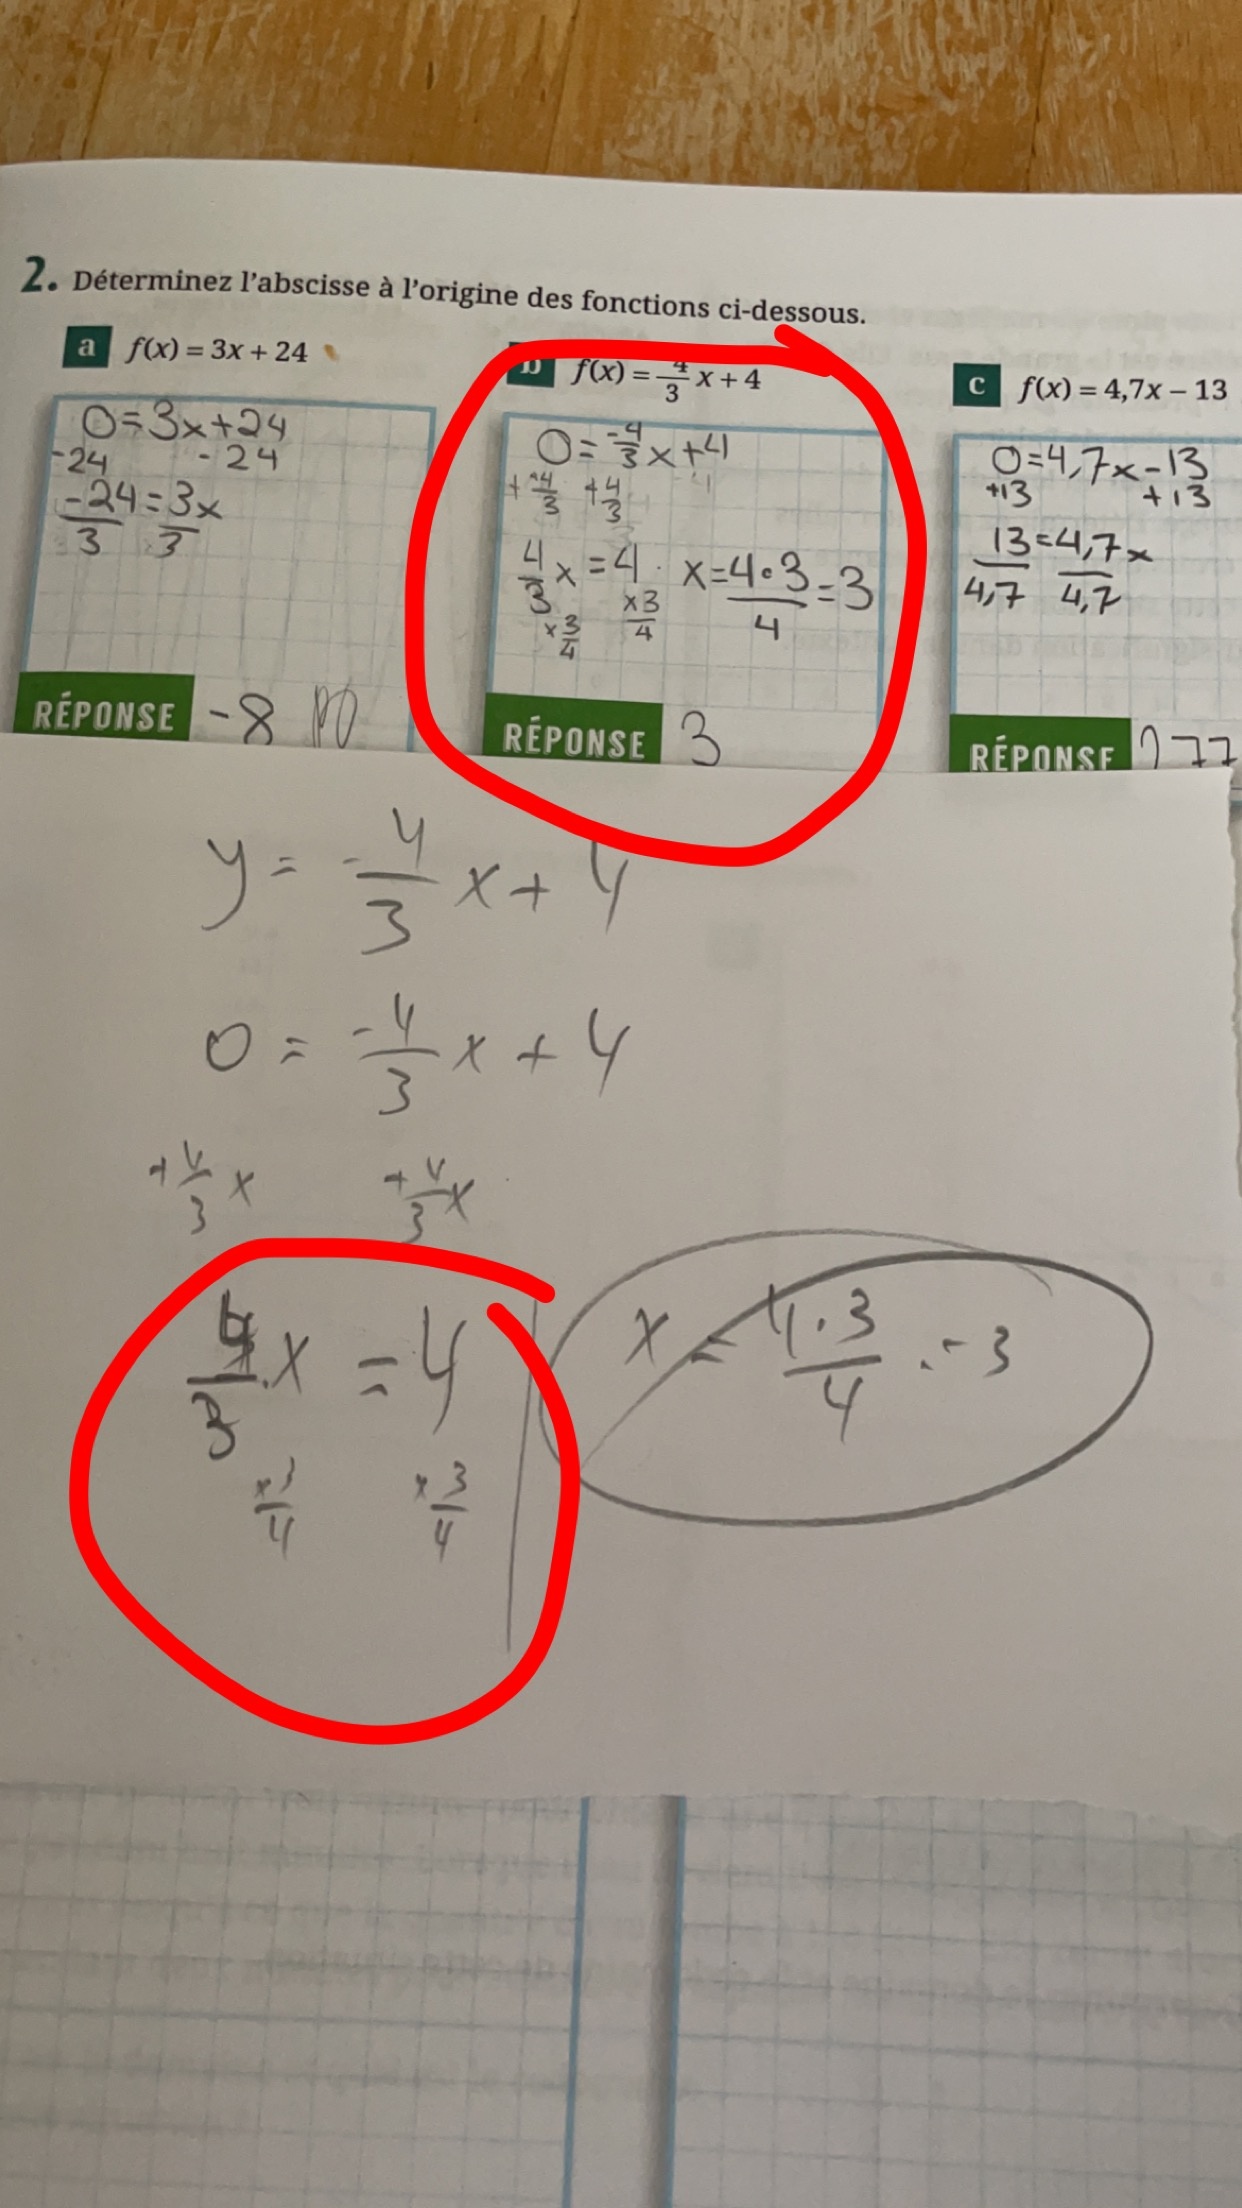 2. Déterminez l'abscisse à l'origine des fonctions ci-dessous.
a f(x) = 3x + 24
0=3x+24
-24 -24
-24=3x
3 3
RÉPONSE -8
b f(x) = -4/3 x + 4
0=-4/3x+4
+4/3 +4/3
4/3x=4 x=4·3/4=3
x3/4 x3/4
RÉPONSE 3
c f(x) = 4,7x – 13
0=4,7x-13
+13 +13
13=4,7x
4,7 4,7
RÉPONSE 77
y = -4/3 x + 4
0 = -4/3 x + 4
+4/3 x +4/3 x
4/3 . x = 4
x 3/4 x 3/4
x = 4.3/4 = 3